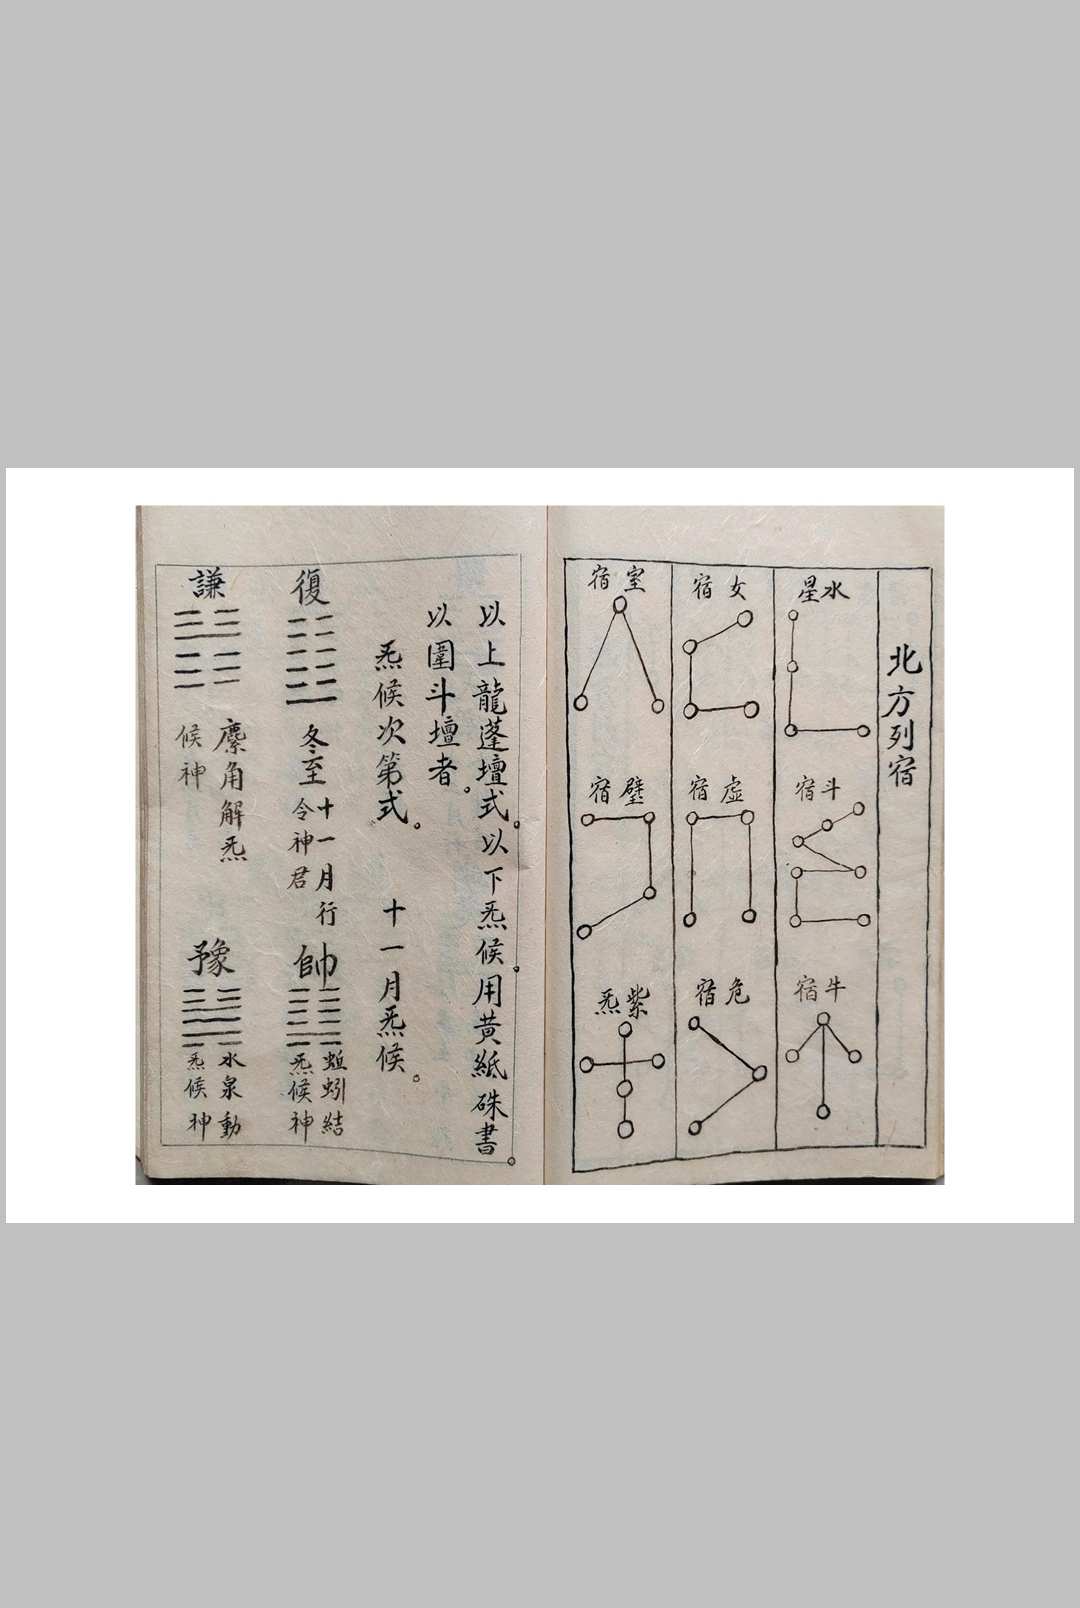 北方列宿
水星
斗宿
牛宿
女宿
虛宿
危宿
室宿
壁宿
紫炁
以上龍蓬壇式。以下炁候。用黃紙硃書。
以圍斗壇者。
炁候次第式。 十一月炁候。
復
冬至
十一月行
令神君
帥
蚯蚓結
炁候神
謙
麋角解炁
候神
豫
水泉動
炁候神